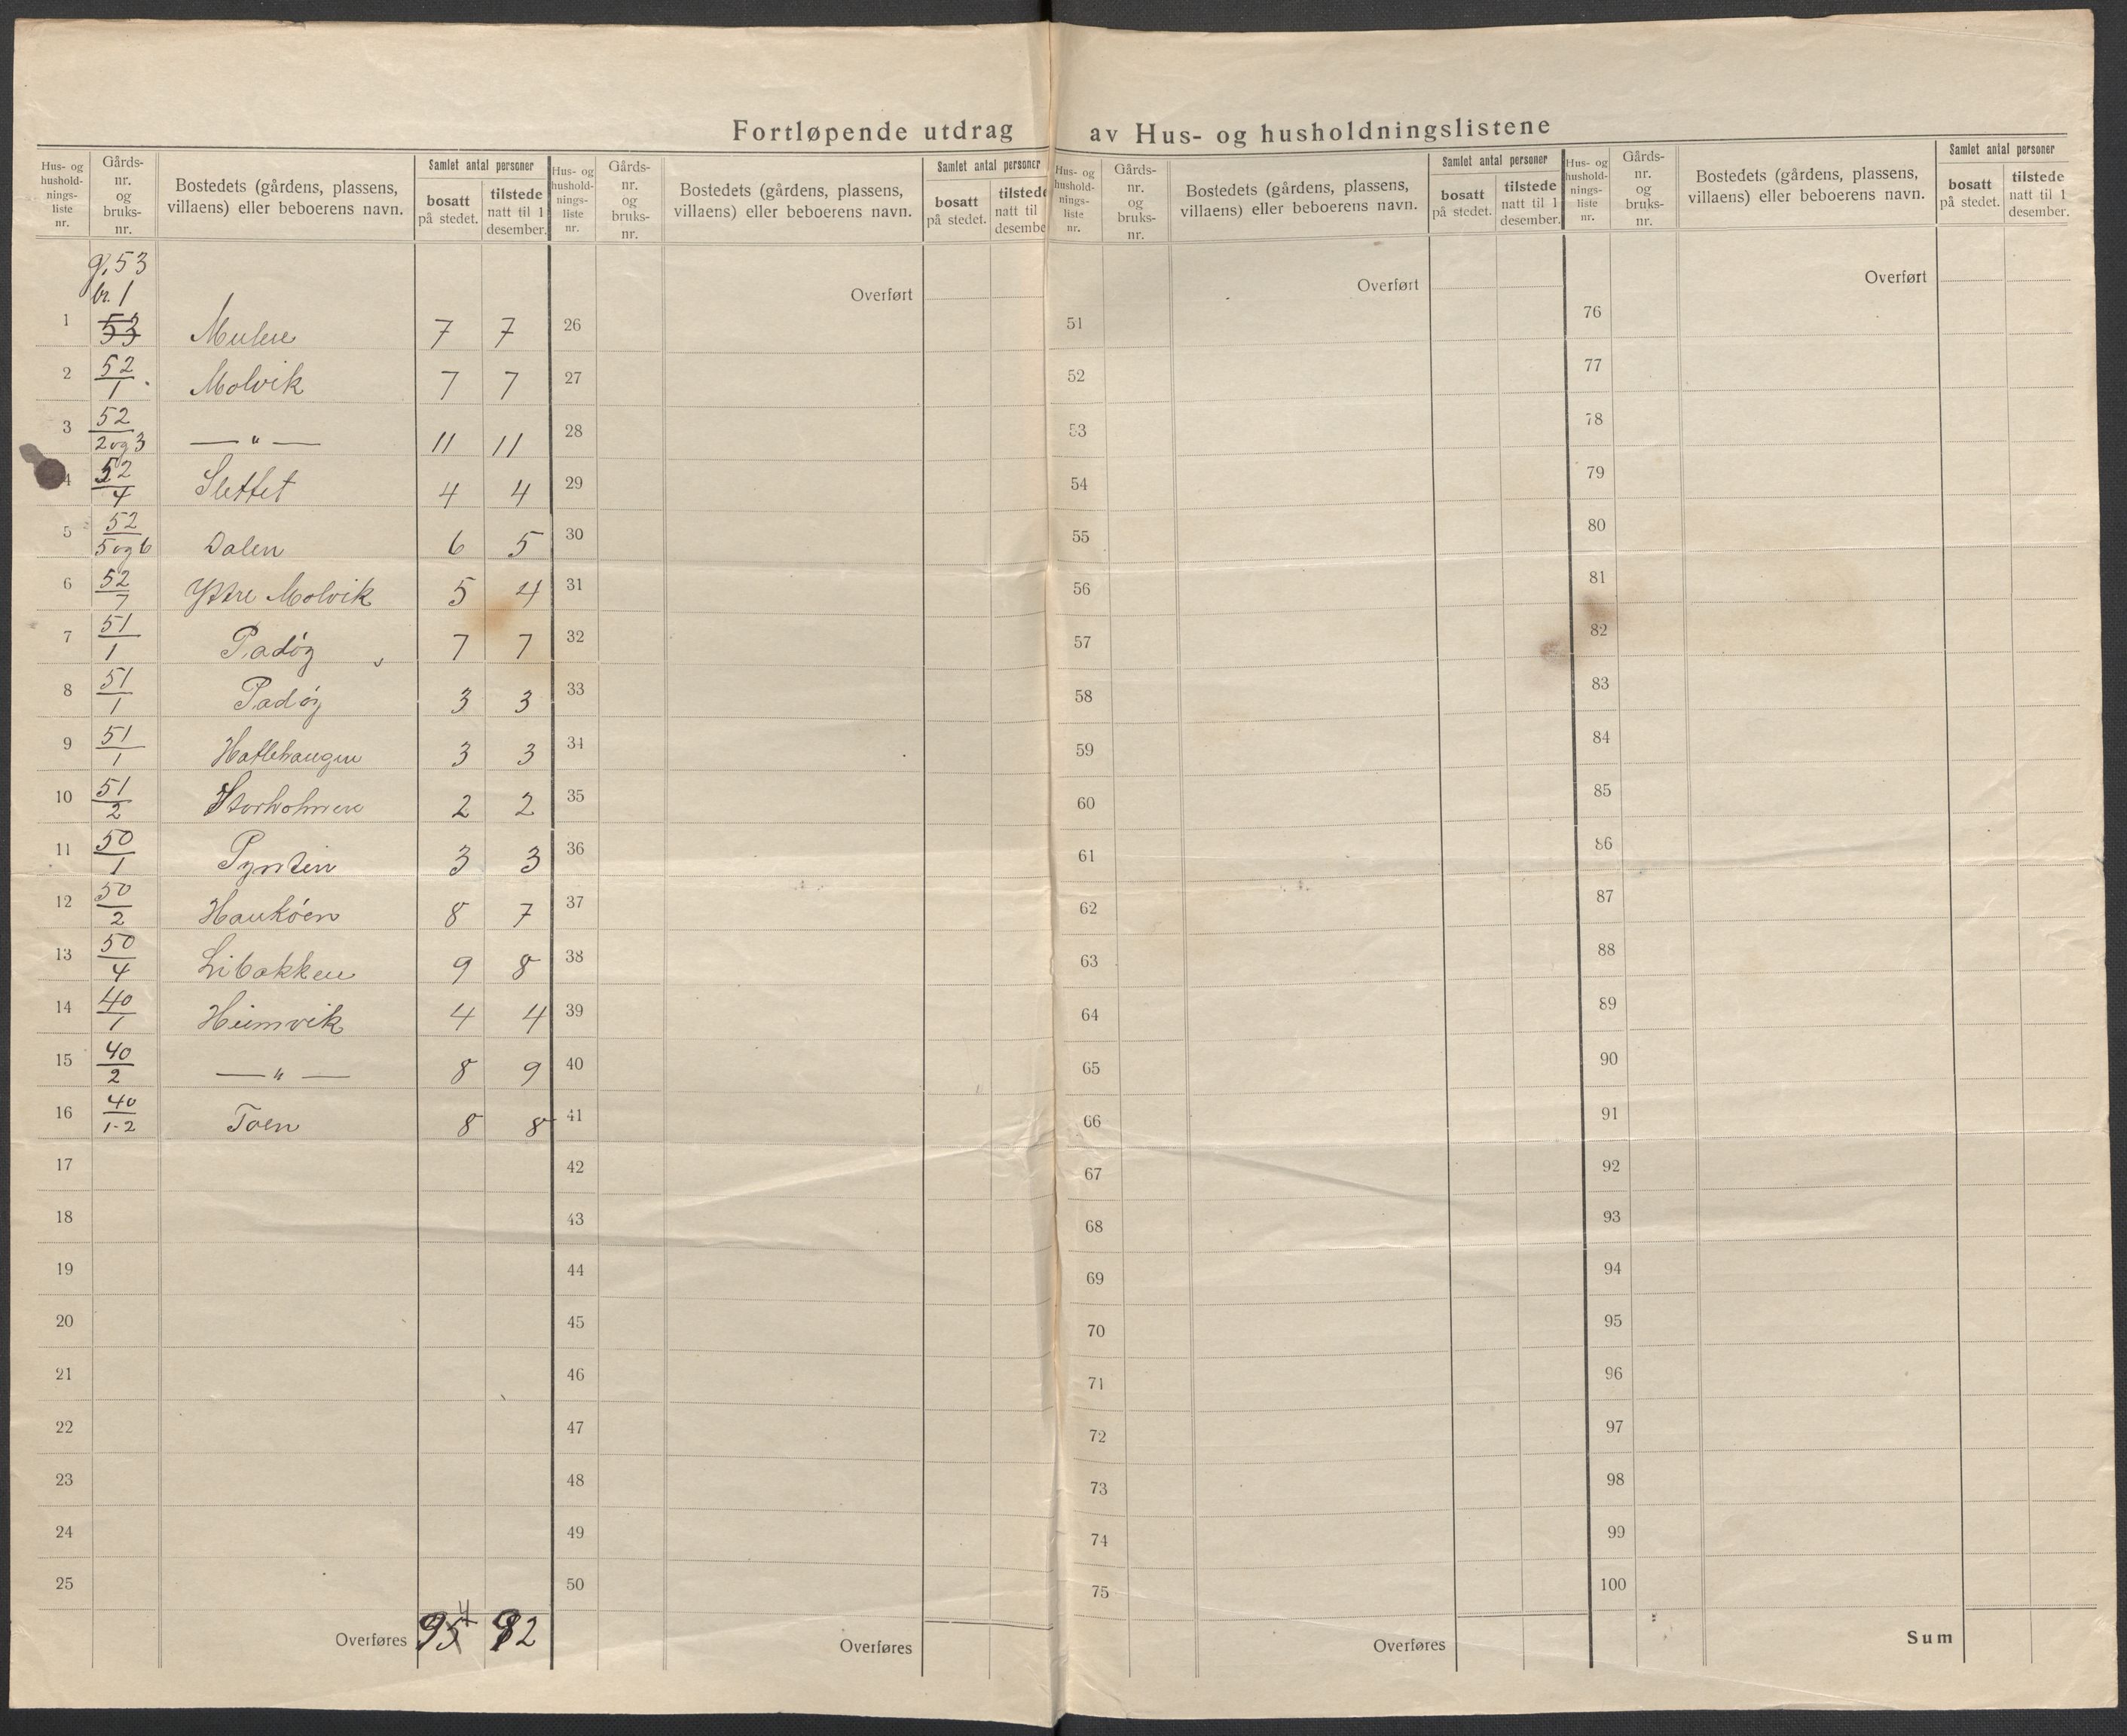 Fortløpende utdrag av Hus- og husholdningslistene
Hus- og hushold-nings-liste nr. Gårds-nr. og bruks-nr. Bostedets (gårdens, plassens, villaens) eller beboerens navn. Samlet antal personer bosatt på stedet. tilstede natt til 1 desember.
Hus- og hushold-nings-liste nr. Gårds-nr. og bruks-nr. Bostedets (gårdens, plassens, villaens) eller beboerens navn. Samlet antal personer bosatt på stedet. tilstede natt til desembe
Hus- og hushold-nings-liste nr. Gårds-nr. og bruks-nr. Bostedets (gårdens, plassens, villaens) eller beboerens navn. Samlet antal personer bosatt på stedet. tilstede natt til 1 desember.
Hus- og hushold-nings-liste nr. Gårds-nr. og bruks-nr. Bostedets (gårdens, plassens, villaens) eller beboerens navn. Samlet antal personer bosatt på stedet. tilstede natt til 1 desember.
g. 53
br. 1
1 53 Mulen 7 7
2 52/1 Molvik 7 7
3 52/2 og 3 — " — 11 11
4 52/4 Slettet 4 4
5 52/5 og 6 Dalen 6 5
6 52/7 Yttre Molvik 5 4
7 51/1 Padøy 7 7
8 51/1 Padøy 3 3
9 51/1 Hatlehaugen 3 3
10 51/2 Storholmen 2 2
11 50/1 Pynten 3 3
12 50/2 Haukøen 8 7
13 50/4 Libakken 9 8
14 40/1 Heimvik 4 4
15 40/2 — " — 8 9
16 40/1-2 Toen 8 8
17
18
19
20
21
22
23
24
25
Overføres 954 92
Overført
26
27
28
29
30
31
32
33
34
35
36
37
38
39
40
41
42
43
44
45
46
47
48
49
50
Overføres
Overført
51
52
53
54
55
56
57
58
59
60
61
62
63
64
65
66
67
68
69
70
71
72
73
74
75
Overføres
Overført
76
77
78
79
80
81
82
83
84
85
86
87
88
89
90
91
92
93
94
95
96
97
98
99
100
Sum